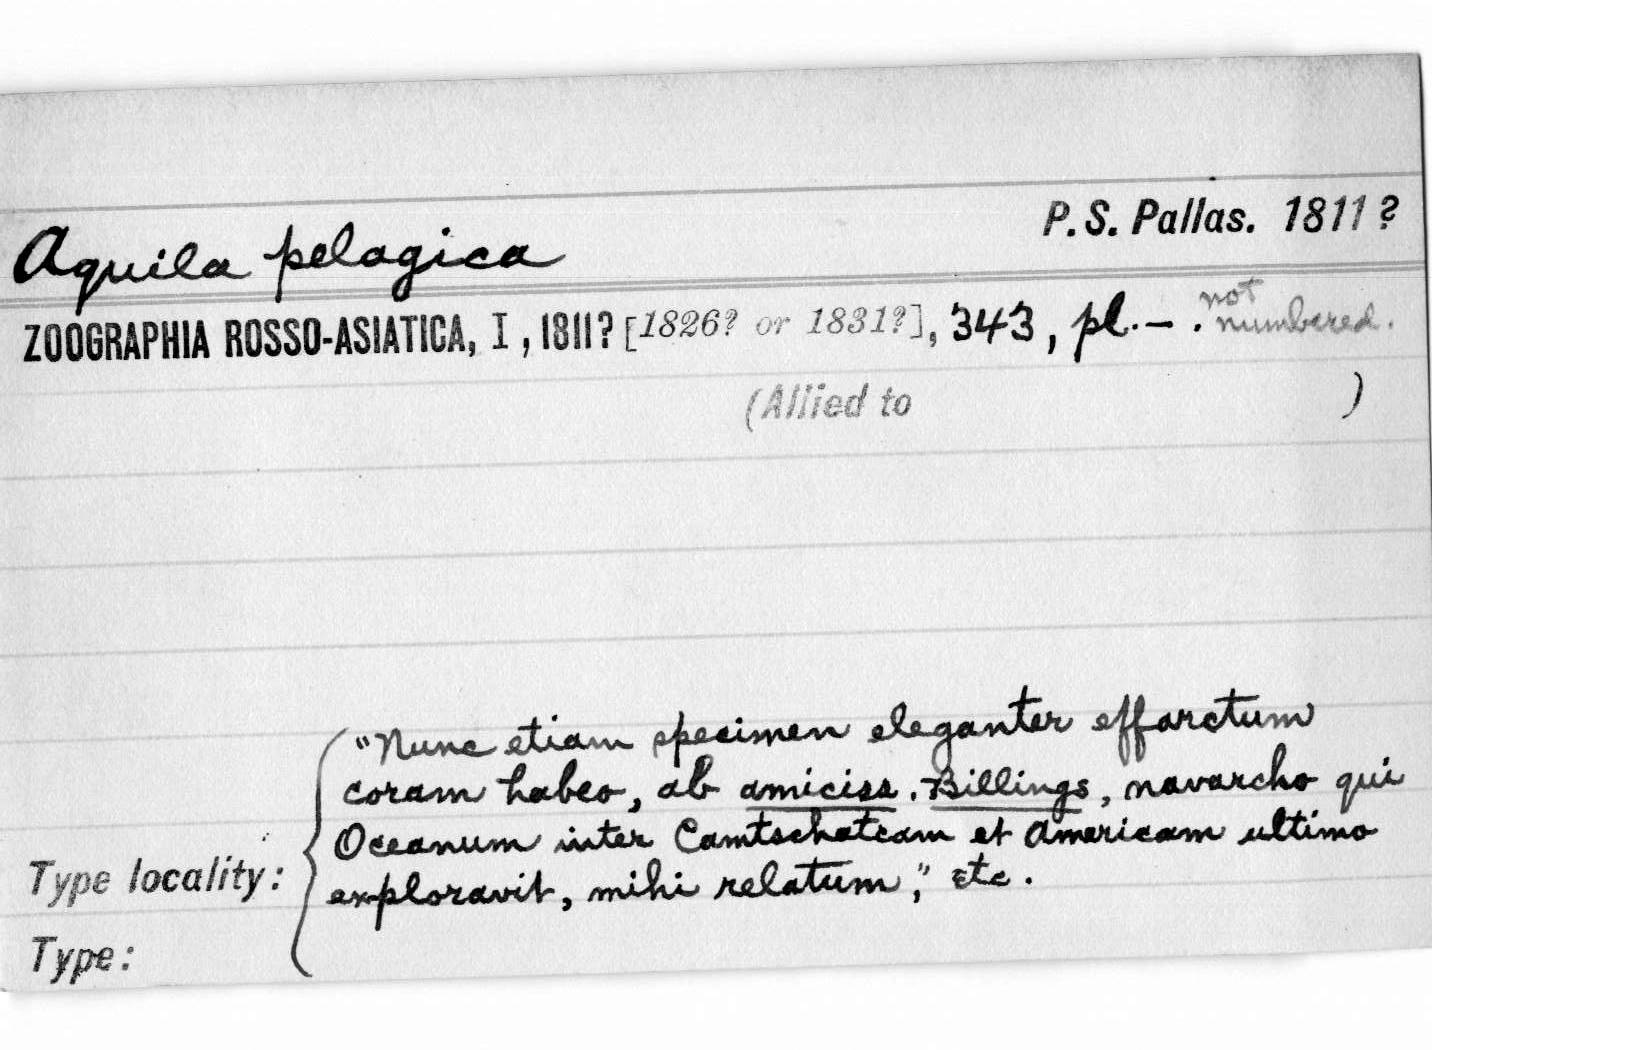 P. S. Pallas. 1811?
Aquila pelagica
ZOOGRAPHIA ROSSO-ASIATICA, I, 1811? [1826? or 1831?], 343, pl. – . not numbered.
(Allied to )
"Nunc etiam specimen eleganter effarctum
coram habeo, ab amiciss. Billings, navarcho qui
Oceanum inter Camtschatcam et Americam ultimo
Type locality: exploravit, mihi relatum," etc.
Type: